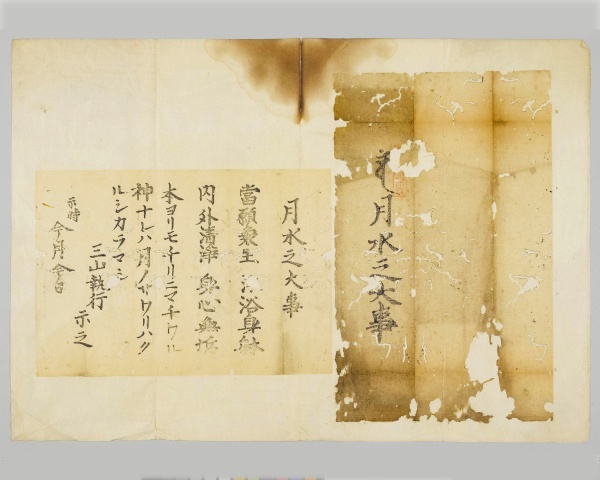 月水之大事
月水之大事
當願衆生 沐浴身體
内外清浄 身心無垢
本ヨリモチリニマチワル
神ナレハ月ノサワリハク
ルシカラマシ
三山執行 示之
示時
今月今日